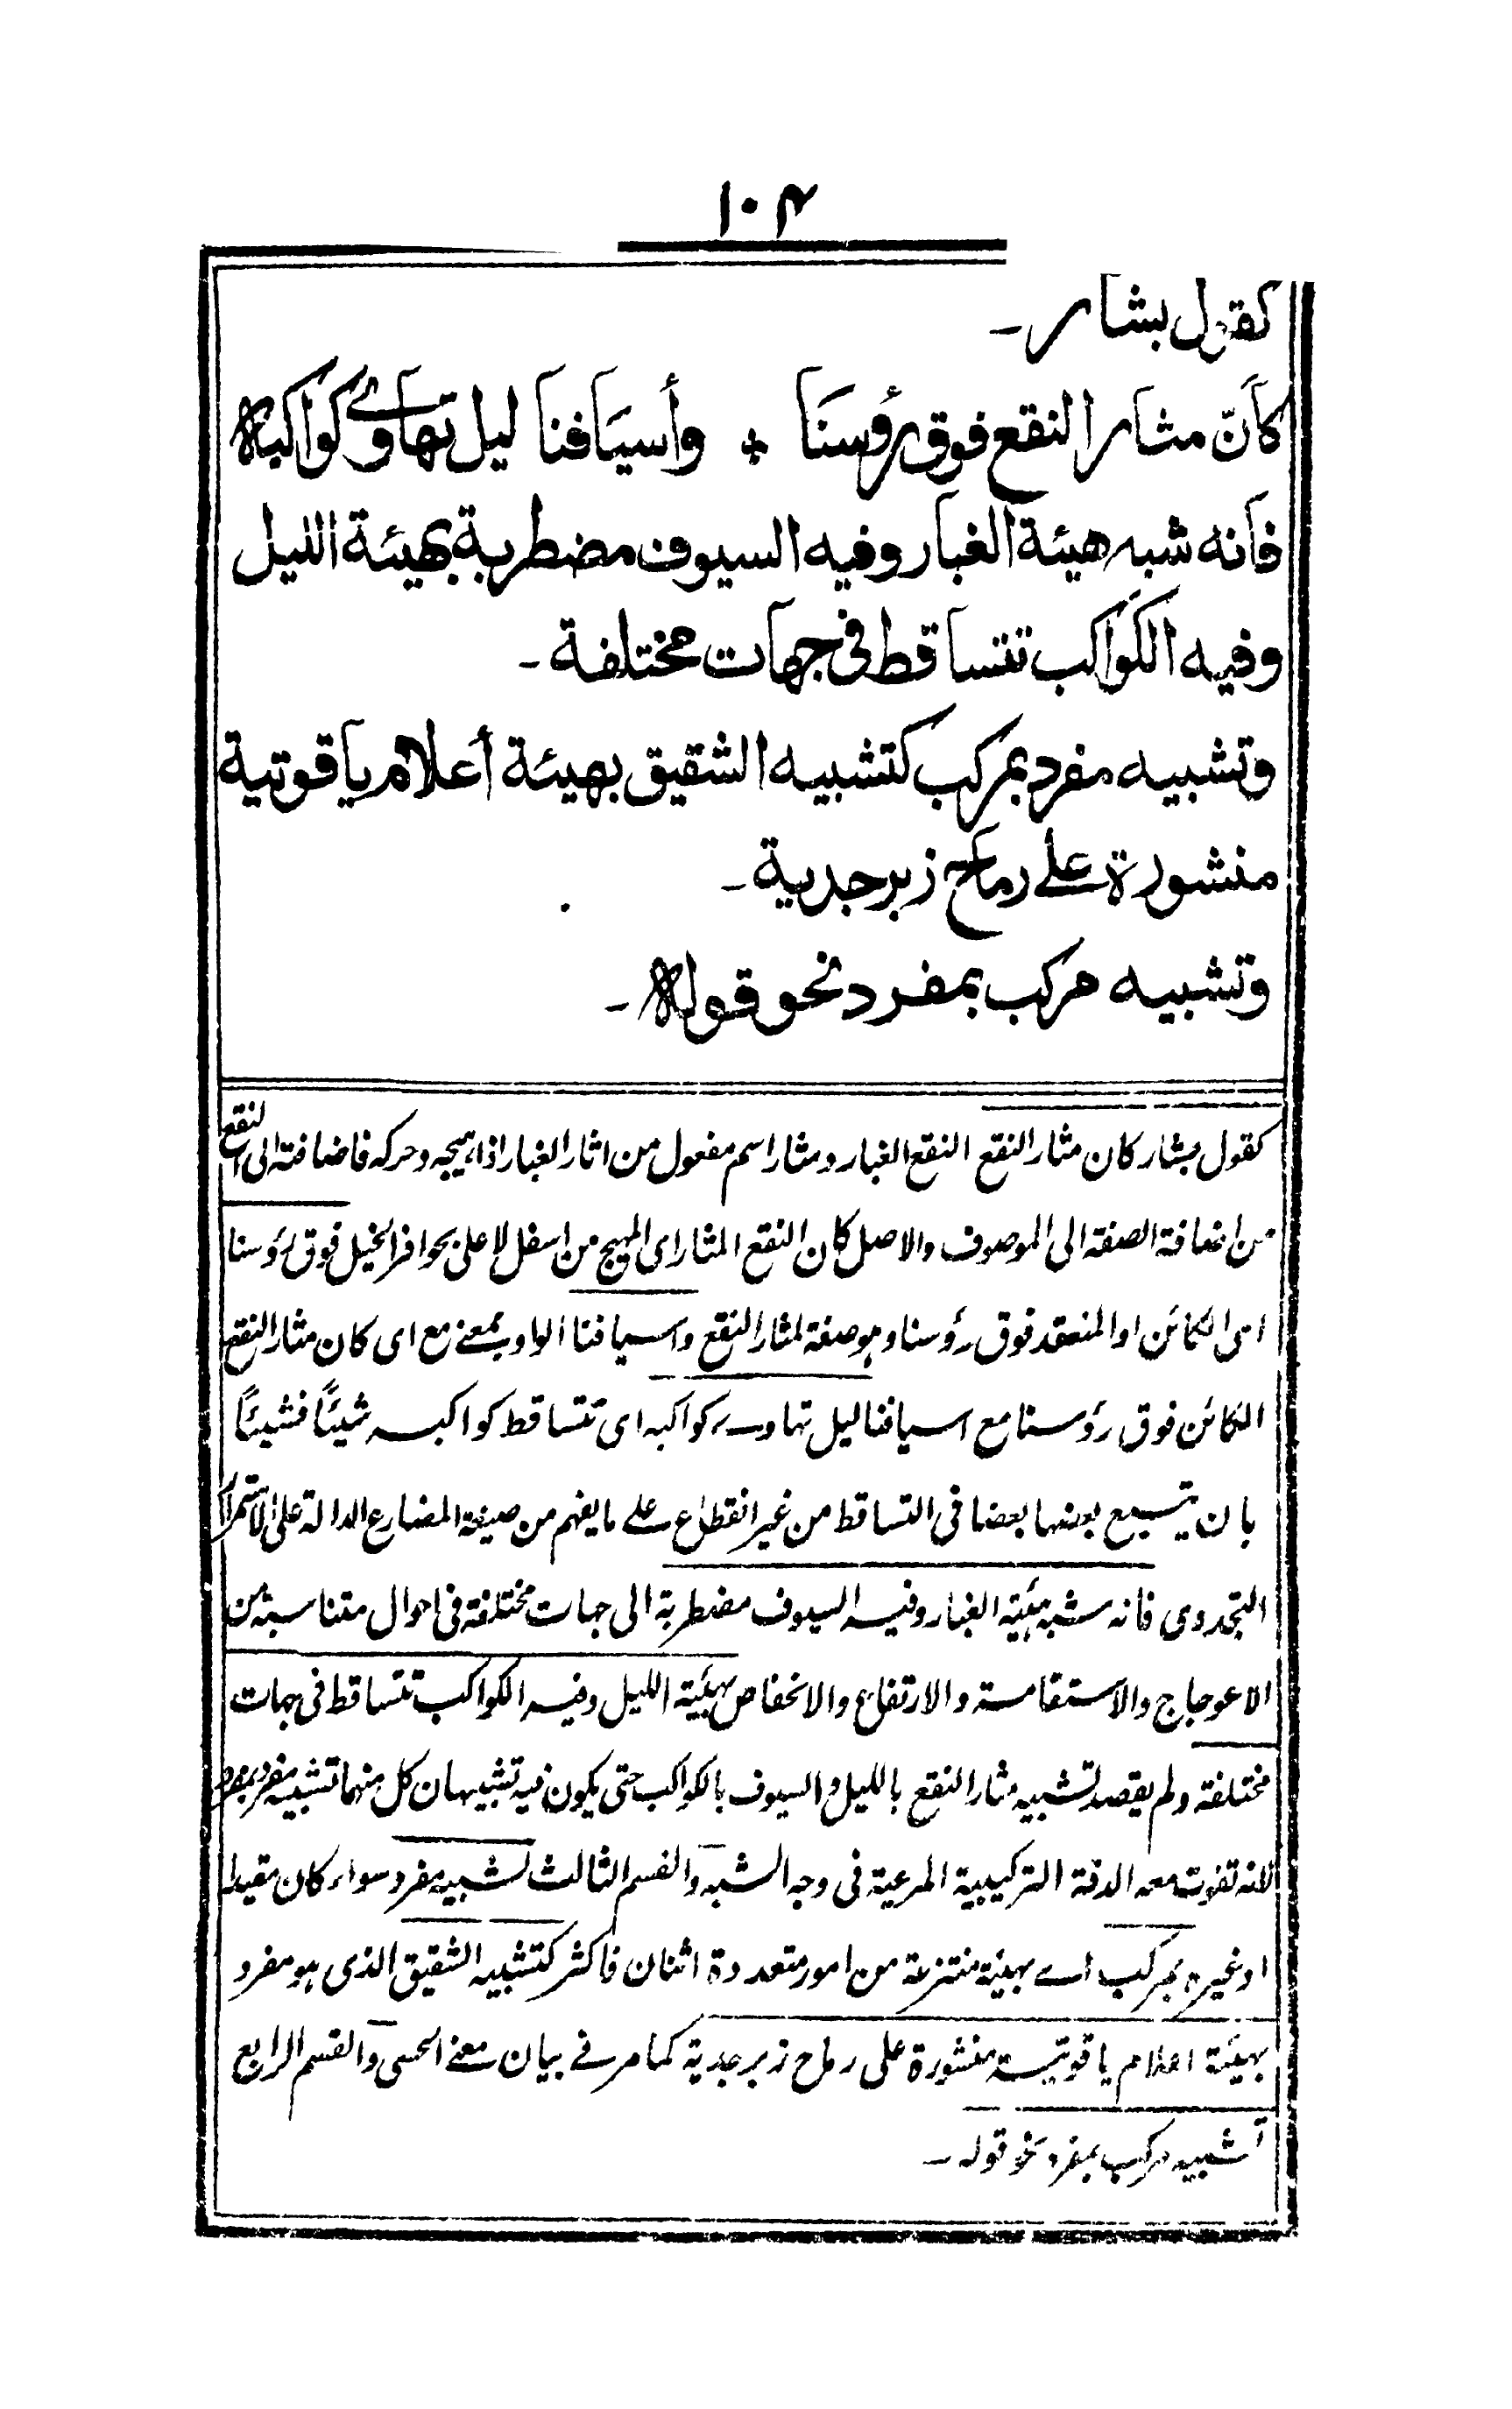 ١٠٤
كقول بشار -
كأنّ مثار النقع فوق رؤسنا * وأسيافنا ليل تهاوے كواكبه
فانه شبه هيئة الغبار وفيه السيوف مضطربة بهيئة الليل
وفيه الكواكب تتساقط فى جهات مختلفة -
وتشبيه مفرد بمركب كتشبيه الشقيق بهيئة أعلام ياقوتية
منشورة على رماح زبرجدية -
وتشبيه مركب بمفرد نحو قوله -
كقول بشار كان مثار النقع النقع الغبار ومثار اسم مفعول من اثار الغبار اذا هيجه وحركه فاضافته الى النقع
من اضافة الصفة الى الموصوف والاصل كان النقع المثار اى المهيج من اسفل لاعلى بحوافر الخيل فوق رؤسنا
اى الكائن او المنعقد فوق رؤسنا وهو صفة لمثار النقع واسيافنا الواو بمعنے مع اى كان مثار النقع
الكائن فوق رؤسنا مع اسيافنا ليل تهاوے كواكبه اى تتساقط كواكبه شيئاً فشيئاً
بان يتبع بعضها بعضا فى التساقط من غير انقطاع علے ما يفهم من صيغة المضارع الدالة على الاستمرار
التجددى فانه شبه هيئة الغبار وفيه السيوف مضطربة الى جهات مختلفة فى احوال متناسبة من
الاعوجاج والاستقامة والارتفاع والانخفاض بهيئة الليل وفيه الكواكب تتساقط فى جهات
مختلفة ولم يقصد تشبيه مثار النقع بالليل والسيوف بالكواكب حتى يكون فيه تشبيهان كل منهما تشبيه مفرد بمفرد
لانه تفوت معه الدقة التركيبية المرعية فى وجه الشبه والقسم الثالث تشبيه مفرد سواء كان مقيدا
او غيره بمركب اے بهيئة منتزعة من امور متعددة اثنان فاكثر كتشبيه الشقيق الذى هو مفرد
بهيئة اعلام ياقوتية منشورة على رماح زبرجدية كما مر فے بيان معنے الحسى والقسم الرابع
تشبيه مركب بمفرد نحو قوله -